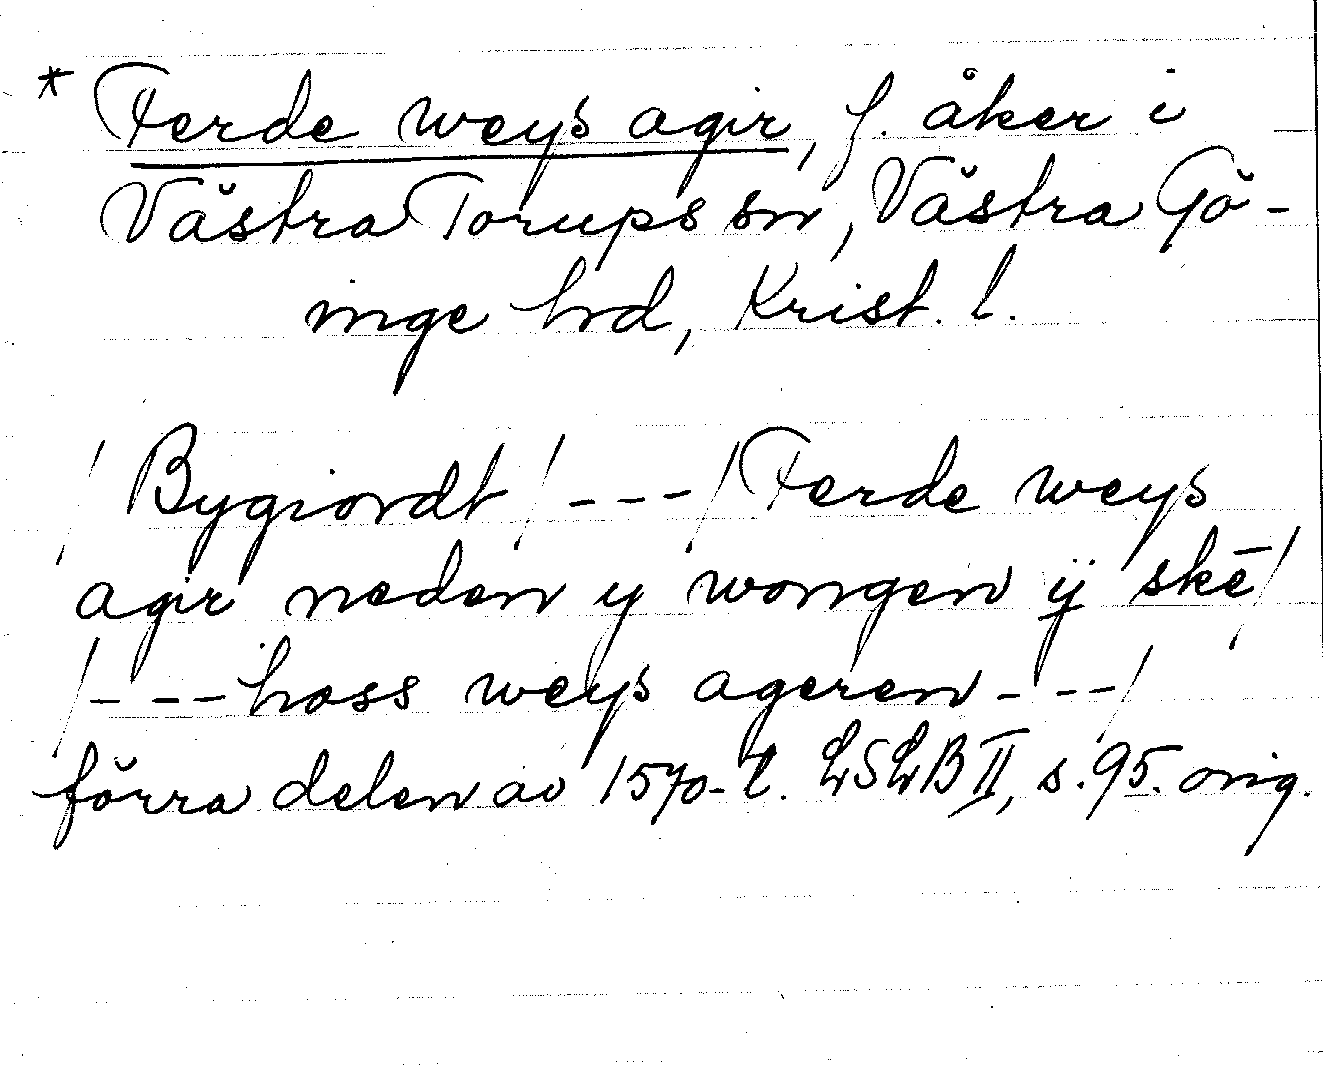 * Ferde weys agir, f. åker i
Västra Torups sn, Västra Gö-
inge hd, Krist. l.
/Bygiordt/ --- /Ferde weys
agir neden y wongen ÿ skē/
/--- hoss weys ageren ---/
förra delen av 1570-t. LSLB II, s. 95. orig.